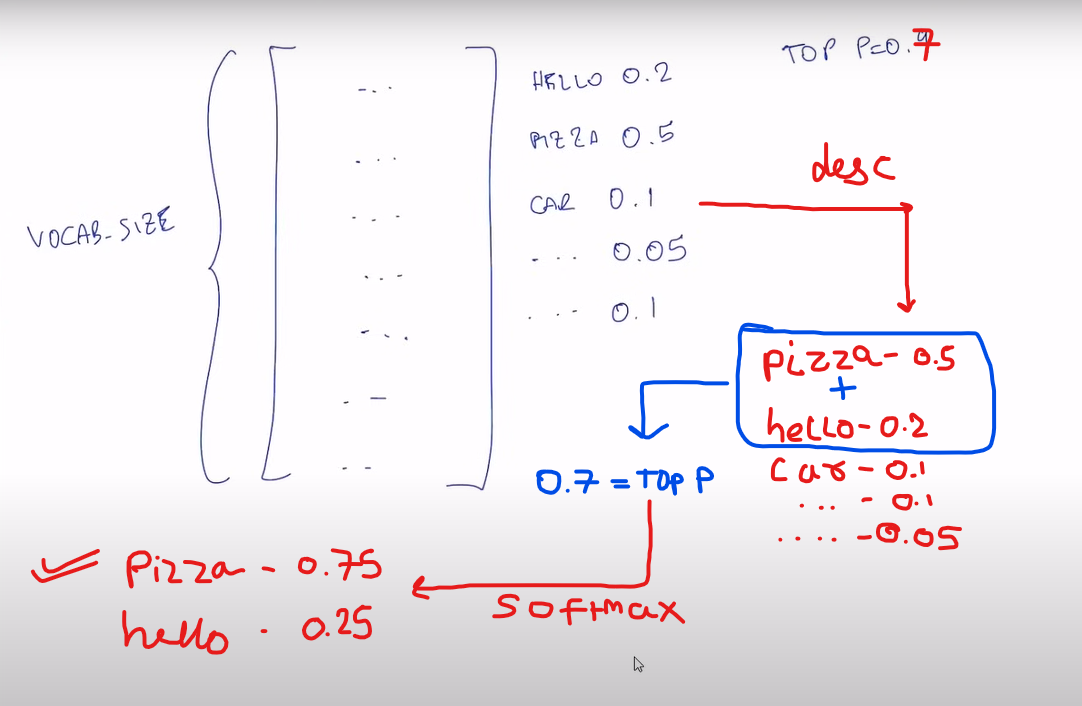 TOP P=0.7
HELLO 0.2
PIZZA 0.5
CAR 0.1
... 0.05
... 0.1
VOCAB_SIZE
desc
pizza - 0.5
+
hello - 0.2
car - 0.1
... - 0.1
.... - 0.05
0.7 = TOP P
softmax
Pizza - 0.75
hello - 0.25